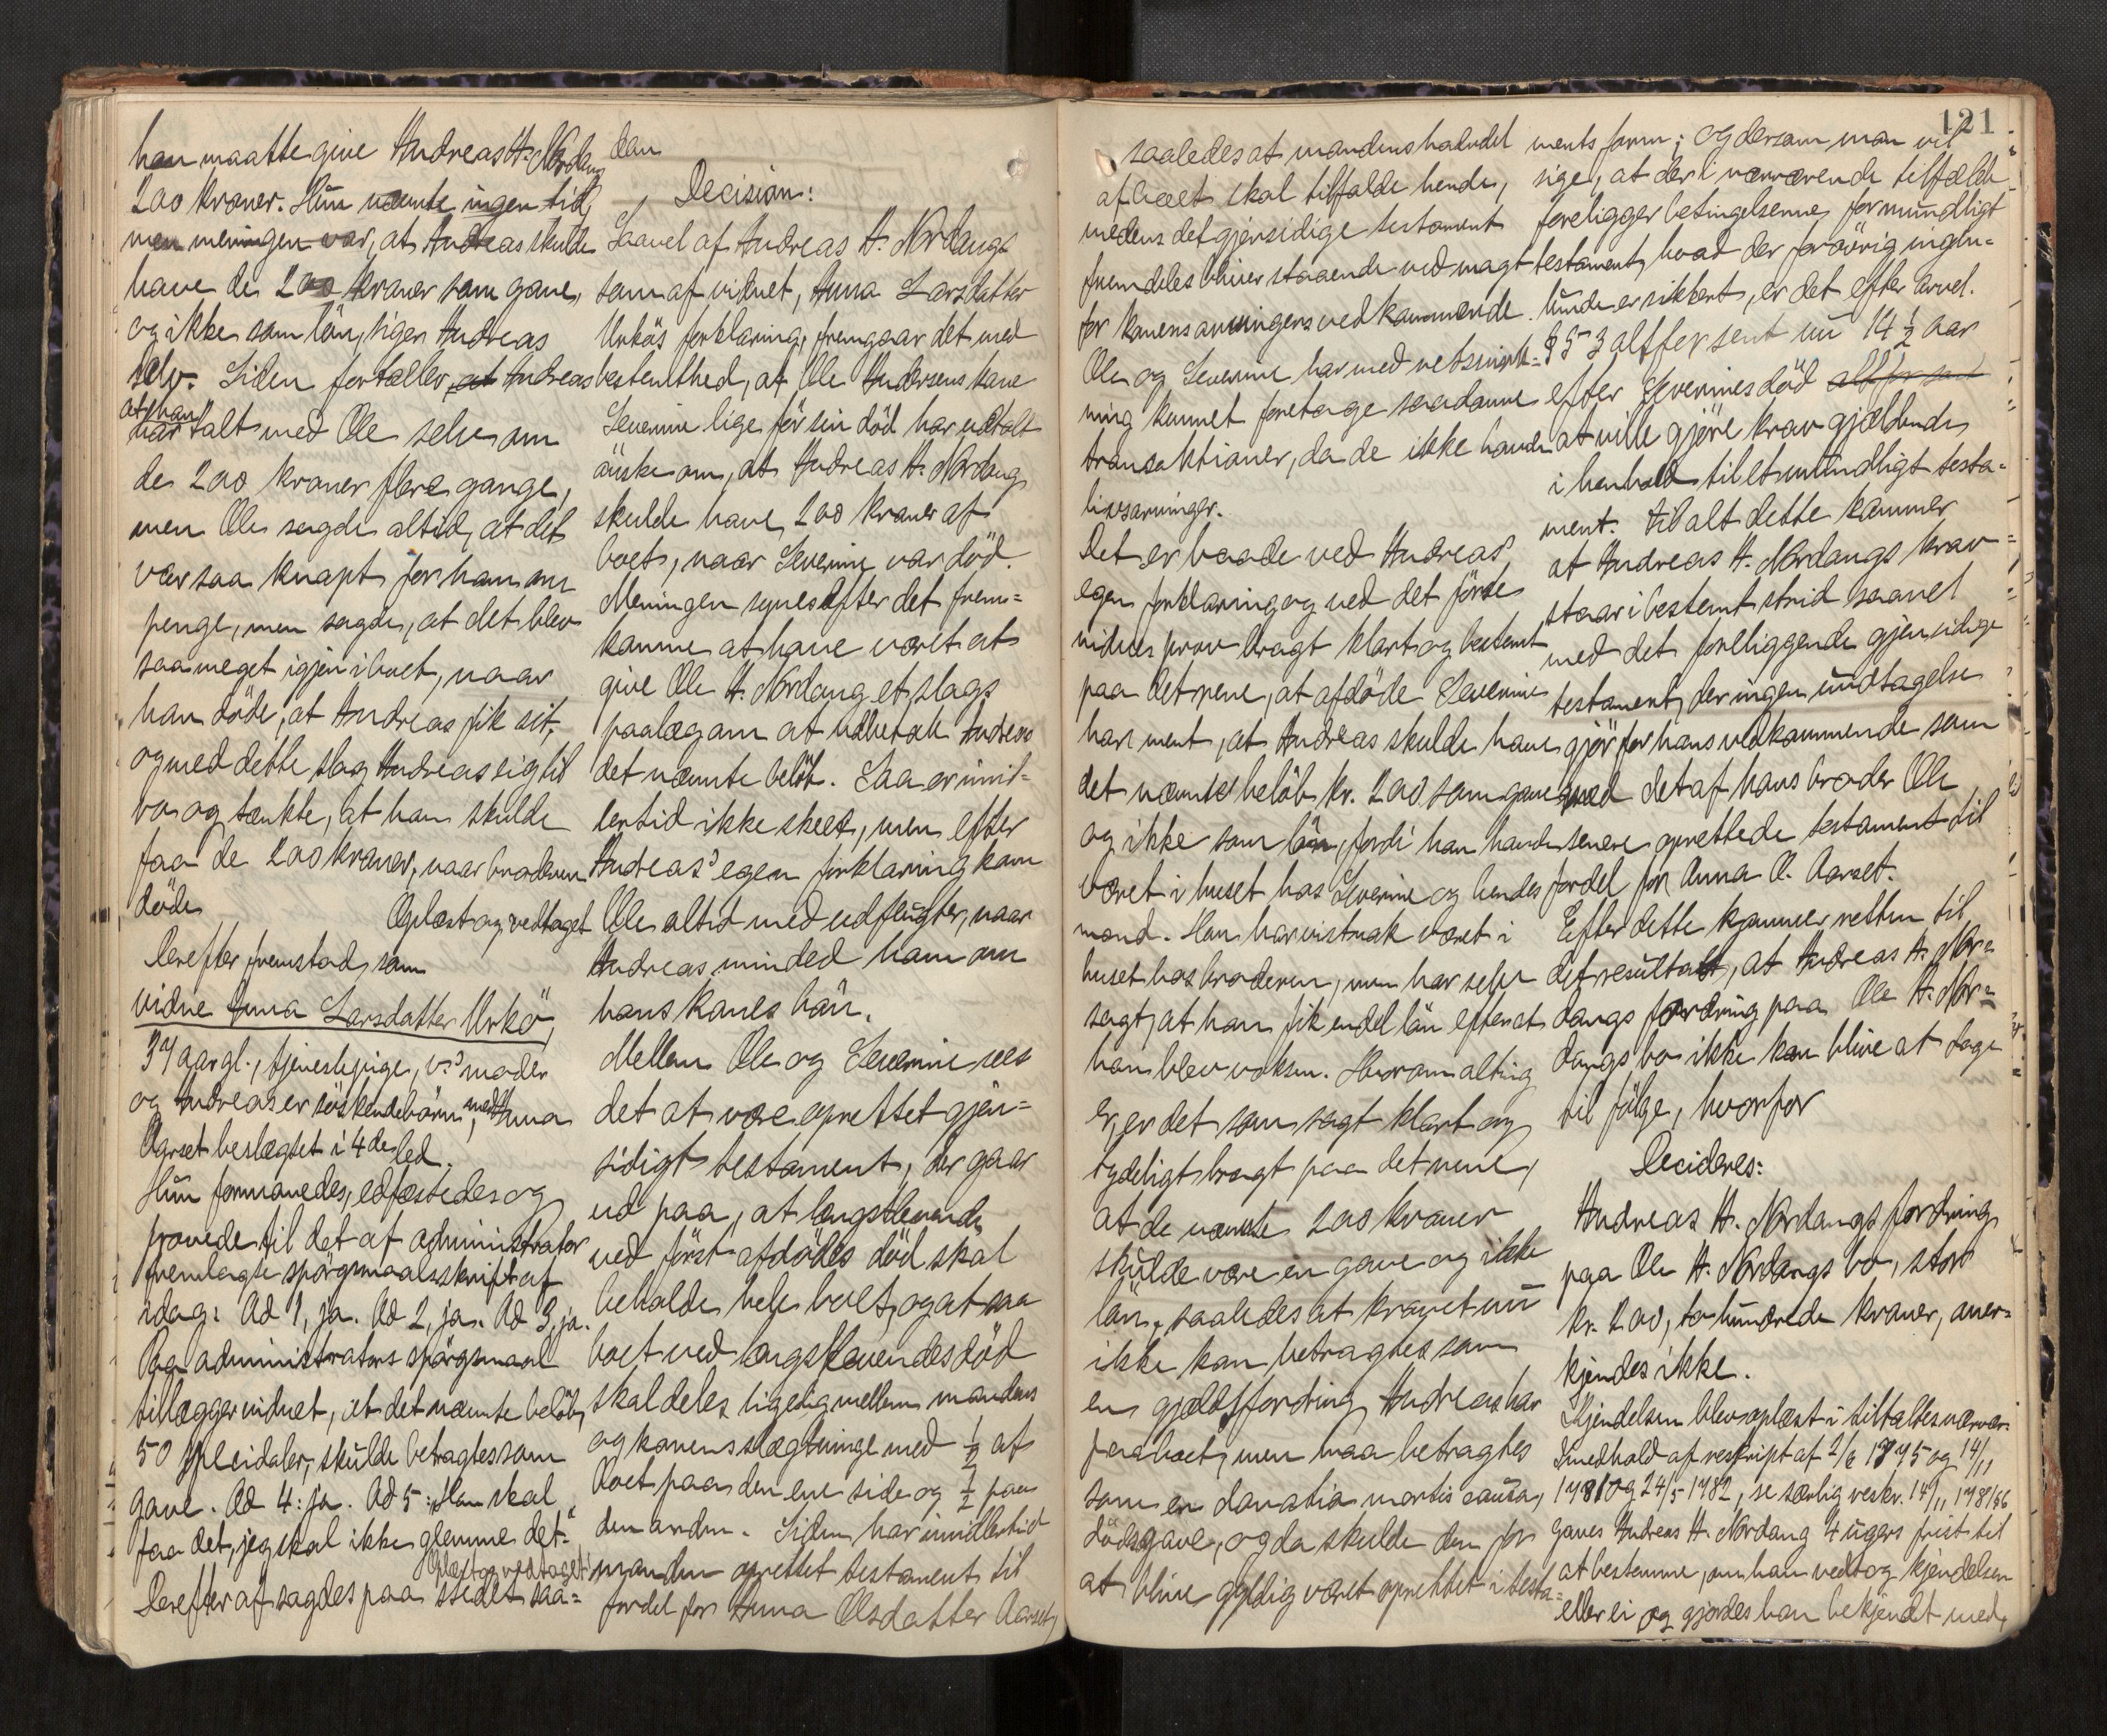 han maatte give Andreas H. Nordang
200 kroner. Hun nævnte ingen tid,
men meningen var, at Andreas skulde
have de 200 kroner som gave,
og ikke som lån, siger Andreas
selv. Siden fortæller, at Andreas
at han
har talt med Ole selv om
de 200 kroner flere gange,
men Ole sagde altid, at det
var saa knapt for ham om
penge, men sagde, at det blev
saa meget igjen i boet, naar
han döde, at Andreas fik sit,
og med dette slog Andreas sig til
ro og tænkte, at han skulde
faa de 200 kroner, naar broderen
döde.
Oplæst og vedtaget
Derefter fremstod som
vidne Anna Larsdatter Urkö,
37 aar gl., tjenestepige, v.s moder
og Andreas er söskendebörn, med Anna
Aarset beslægtet i 4de led.
Hun formanedes, edfæstedes og
provede til det af administrator
fremlagte spörgsmaalsskrift af
idag: Ad 1, ja. Ad 2, ja. Ad 3, ja.
Paa administrators spörgsmaal
tillægger vidnet, at det nævnte belöb,
50 speciedaler, skulde betragtes som
gave. Ad 4: ja. Ad 5: "Han skal
faa det, jeg skal ikke glemme det."
Oplæst og vedtaget
Derefter afsagdes paa stedet saa=
dan
Decision:
Saavel af Andreas H. Nordangs
som af vidnet, Anna Larsdatter
Urkös forklaring, fremgaar det med
bestemthed, at Ole Andersens kone
Severine lige för sin död har udtalt
önske om, at Andreas H. Nordang
skulde have 200 kroner af
boet, naar Severine var död.
Meningen synes efter det frem=
komne at have været at
give Ole H. Nordang et slags
paalæg om at udbetale Andreas
det nævnte belöb. Saa er imid=
lertid ikke skeet, men efter
Andreas' egen forklaring kom
Ole altid med udflugter, naar
Andreas minded ham om
hans kones bön.
Mellem Ole og Severine sees
det at være oprettet gjen=
sidigt testament, der gaar
ud paa, at længstlevende
ved först afdödes död skal
beholde hele boet, og at saa
boet ved længstlevendes död
skal deles ligelig mellem mandens
og konens slægtninge med ½ af
boet paa den ene side og ½ paa
den anden. Siden har imidlertid
manden oprettet testament til
fordel for Anna Olsdatter Aarset,
121
saaledes at mandens halvdel
af boet skal tilfalde hende,
medens det gjensidige testament
fremdeles bliver staaende ved magt
for konens arvingers vedkommende.
Ole og Severine har med retsvirk=
ning kunnet foretage saadanne
transaktioner, da de ikke havde
livsarvinger.
Det er baade ved Andreas'
egen forklaring og ved det förte
vidnes prov bragt klart og bestemt
paa det rene, at afdöde Severine
har ment, at Andreas skulde have
det nævnte belöb kr. 200 som gave
og ikke som lån, fordi han havde
været i huset hos Severine og hendes
mand. Han har vistnok været i
huset hos broderen, men har selv
sagt, at han fik endel lön efterat
han blev voksen. Hvorom alting
er, er det som sagt klart og
tydeligt bragt paa det rene,
at de nævnte 200 kroner
skulde være en gave og ikke
lån, saaledes at kravet nu
ikke kan betragtes som
en gjældsfordring Andreas har
paa boet, men maa betragtes
som en donatio mortis causa,
dödsgave, og da skulde den for
at blive gyldig været oprettet i testa=
ments form; og dersom man vil
sige, at der i nærværende tilfælde
foreligger betingelserne for mundligt
testament, hvad der forövrig ingen=
lunde er sikkert, er det efter arvel.
§ 53 altfor sent nu 14 ½ aar
efter Severines död altfor sent
at ville gjöre krav gjældende
i henhold til et mundligt testa=
ment. Til alt dette kommer
at Andreas H. Nordangs krav
staar i bestemt strid saavel
med det foreliggende gjensidige
testament, der ingen undtagelse
gjör for hans vedkommende som
med det af hans broder Ole
senere oprettede testament til
fordel for Anna O. Aarset.
Efter dette kommer retten til
det resultat, at Andreas H. Nor=
dangs fordring paa Ole H. Nor=
dangs bo ikke kan blive at tage
til fölge, hvorfor
Decideres:
Andreas H. Nordangs fordring
paa Ole H. Nordangs bo, stor
kr. 200, to hundrede kroner, aner=
kjendes ikke.
Kjendelsen blev oplæst i tiltaltes nærvær.
I medhold af reskript af 2/6 1775 og 14/11
1781 og 24/5 1782, se særlig reskr. 14/11 1781 §6
gaves Andreas H. Nordang 4 ugers frist til
at bestemme, om han vedtog kjendelsen
eller ei og gjordes han bekjendt med,